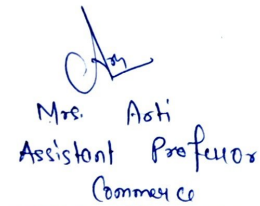 Mrs. Arti
Assistant Professor
Commerce